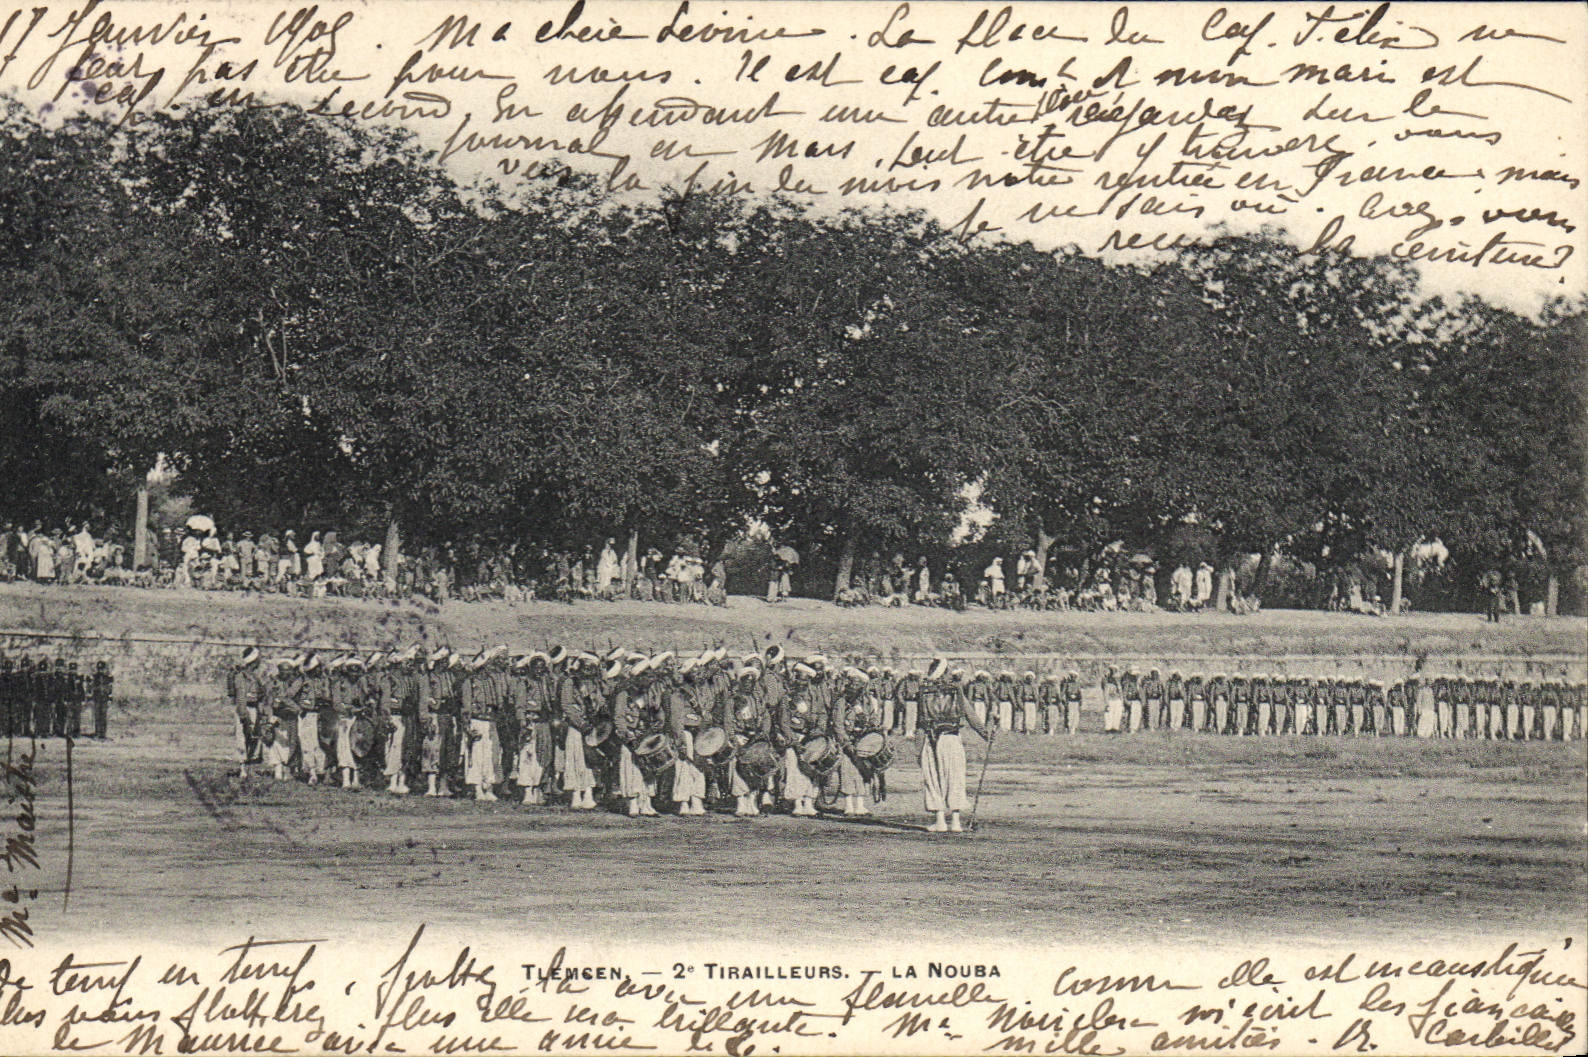 17 Janvier 190. Ma chère. La place du Cap. Félix ne
peut pas être pour nous. Il est cap. Comt et mon mari est
cap. en second. En attendant une autre regardez sur le
journal en Mars, peut être y trouverez vous
vers la fin du mois notre rentrée en France, mais
je ne sais où. Avez vous
reçu la ceinture?
Me Maître.
TLEMCEN. — 2e TIRAILLEURS. — LA NOUBA
De temps en temps, frottez la avec une flanelle. Comme elle est encaustiquée
plus vous frotterez, plus elle sera brillante. Me m'écrit les fiançailles
de Maurice avec une amie
mille amitiés. R.